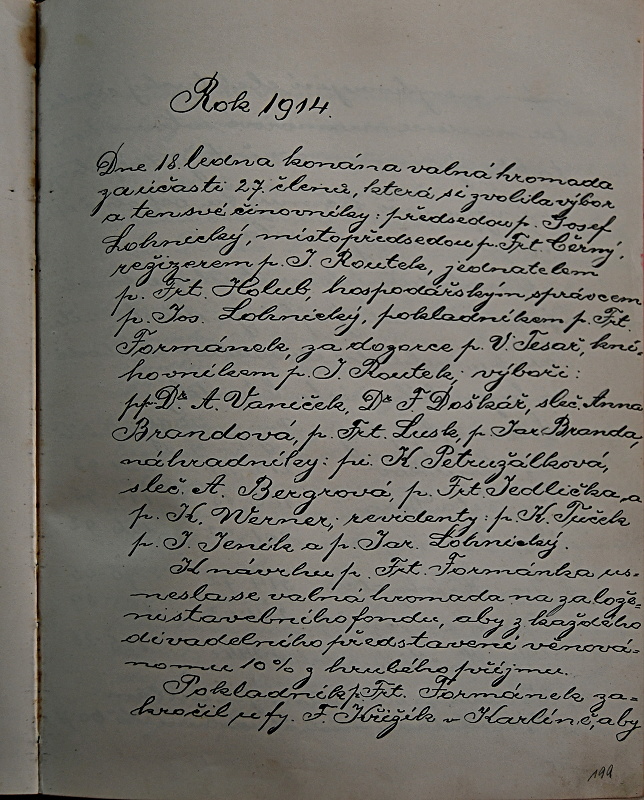 Rok 1914.
Dne 18. ledna konána valná hromada
za účasti 27. členů, která si zvolila výbor
a ten své činovníky: předsedou p. Josef
Lohnický, místopředsedou p. Frt. Černý,
režizerem p. J. Routek, jednatelem
p. Frt. Holub, hospodářským správcem
p. Jos. Lohnický, pokladníkem p. Frt.
Formánek, za dozorce p. V. Tesař, kni
hovníkem p. J. Routek; výboři:
pp. Dr. A. Vaníček, Dr. F. Doškář, sleč. Anna
Brandová, p. Frt. Lusk, p. Jar. Branda,
náhradníky: pí. K. Petružálková,
sleč. A. Bergrová, p. Frt. Jedlička, a
p. K. Werner; revidenty: p. K. Tuček
p. J. Jeník a p. Jar. Lohnický.
K návrhu p. Frt. Formánka us-
nesla se valná hromada na založe-
ní stavebního fondu, aby z každého
divadelního představení věnová-
no mu 10% z hrubého příjmu.
Pokladník p. Frt. Formánek za-
kročil u fy. F. Křižík v Karlíně, aby
199